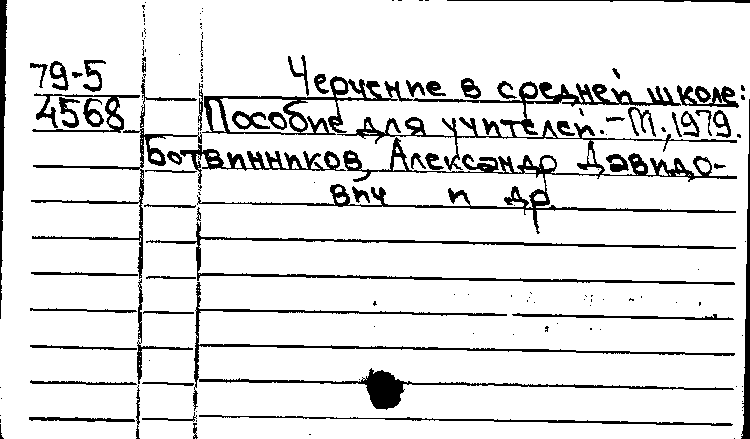 79-5 Черчение в средней школе:
4568 Пособие для учителей. - М., 1979.
Ботвинников, Александр Давидо-
вич и др.